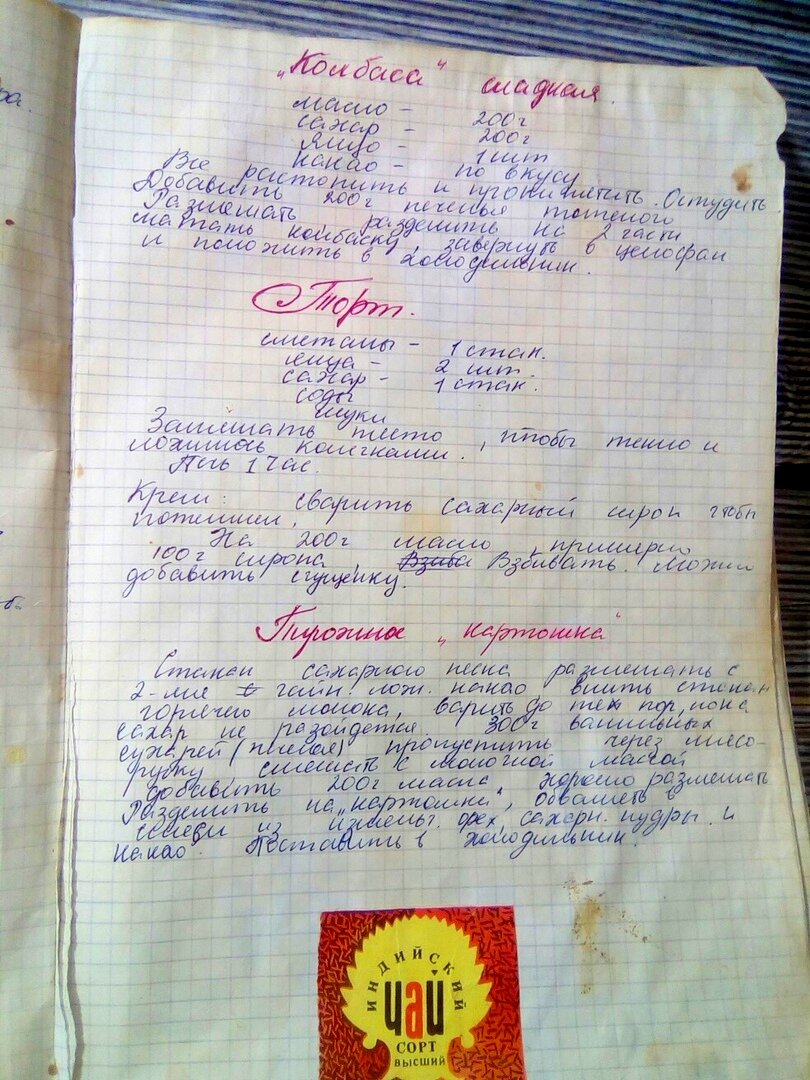 ра.
„Колбаса“ сладкая.
масло – 200г
сахар – 200г
яйцо – 1 шт
какао – по вкусу
Все растопить и прокипятить. Остудить
Добавить 200г печенья толченого
Размешать разделить на 2 части
скатать колбаску, завернуть в целофан
и положить в холодильник.
Торт.
сметаны – 1 стак.
яйца – 2 шт.
сахар – 1 стак.
соды
муки
Замешать тесто, чтобы текло и
ложилось колечками.
Печь 1 час.
Крем: сварить сахарный сироп чтоб
потемнел,
На 200г масло примерно
100г сиропа Взбивать. Можно
добавить сгущенку.
Пирожное „картошка“
Стакан сахарного песка размешать с
2-мя чайн. лож. какао влить стакан
горячего молока, варить до тех пор, пока
сахар не разойдется. 300г ванильных
сухарей (печенья) пропустить через мясо-
рубку смешать с молочной массой
добавить 200г масла хорошо размешать
Разделить на „картошка“, обвалять в
смеси из измельч. орех, сахарн. пудры и
какао. Поставить в холодильник.
ИНДИЙСКИЙ
чай
СОРТ
ВЫСШИЙ